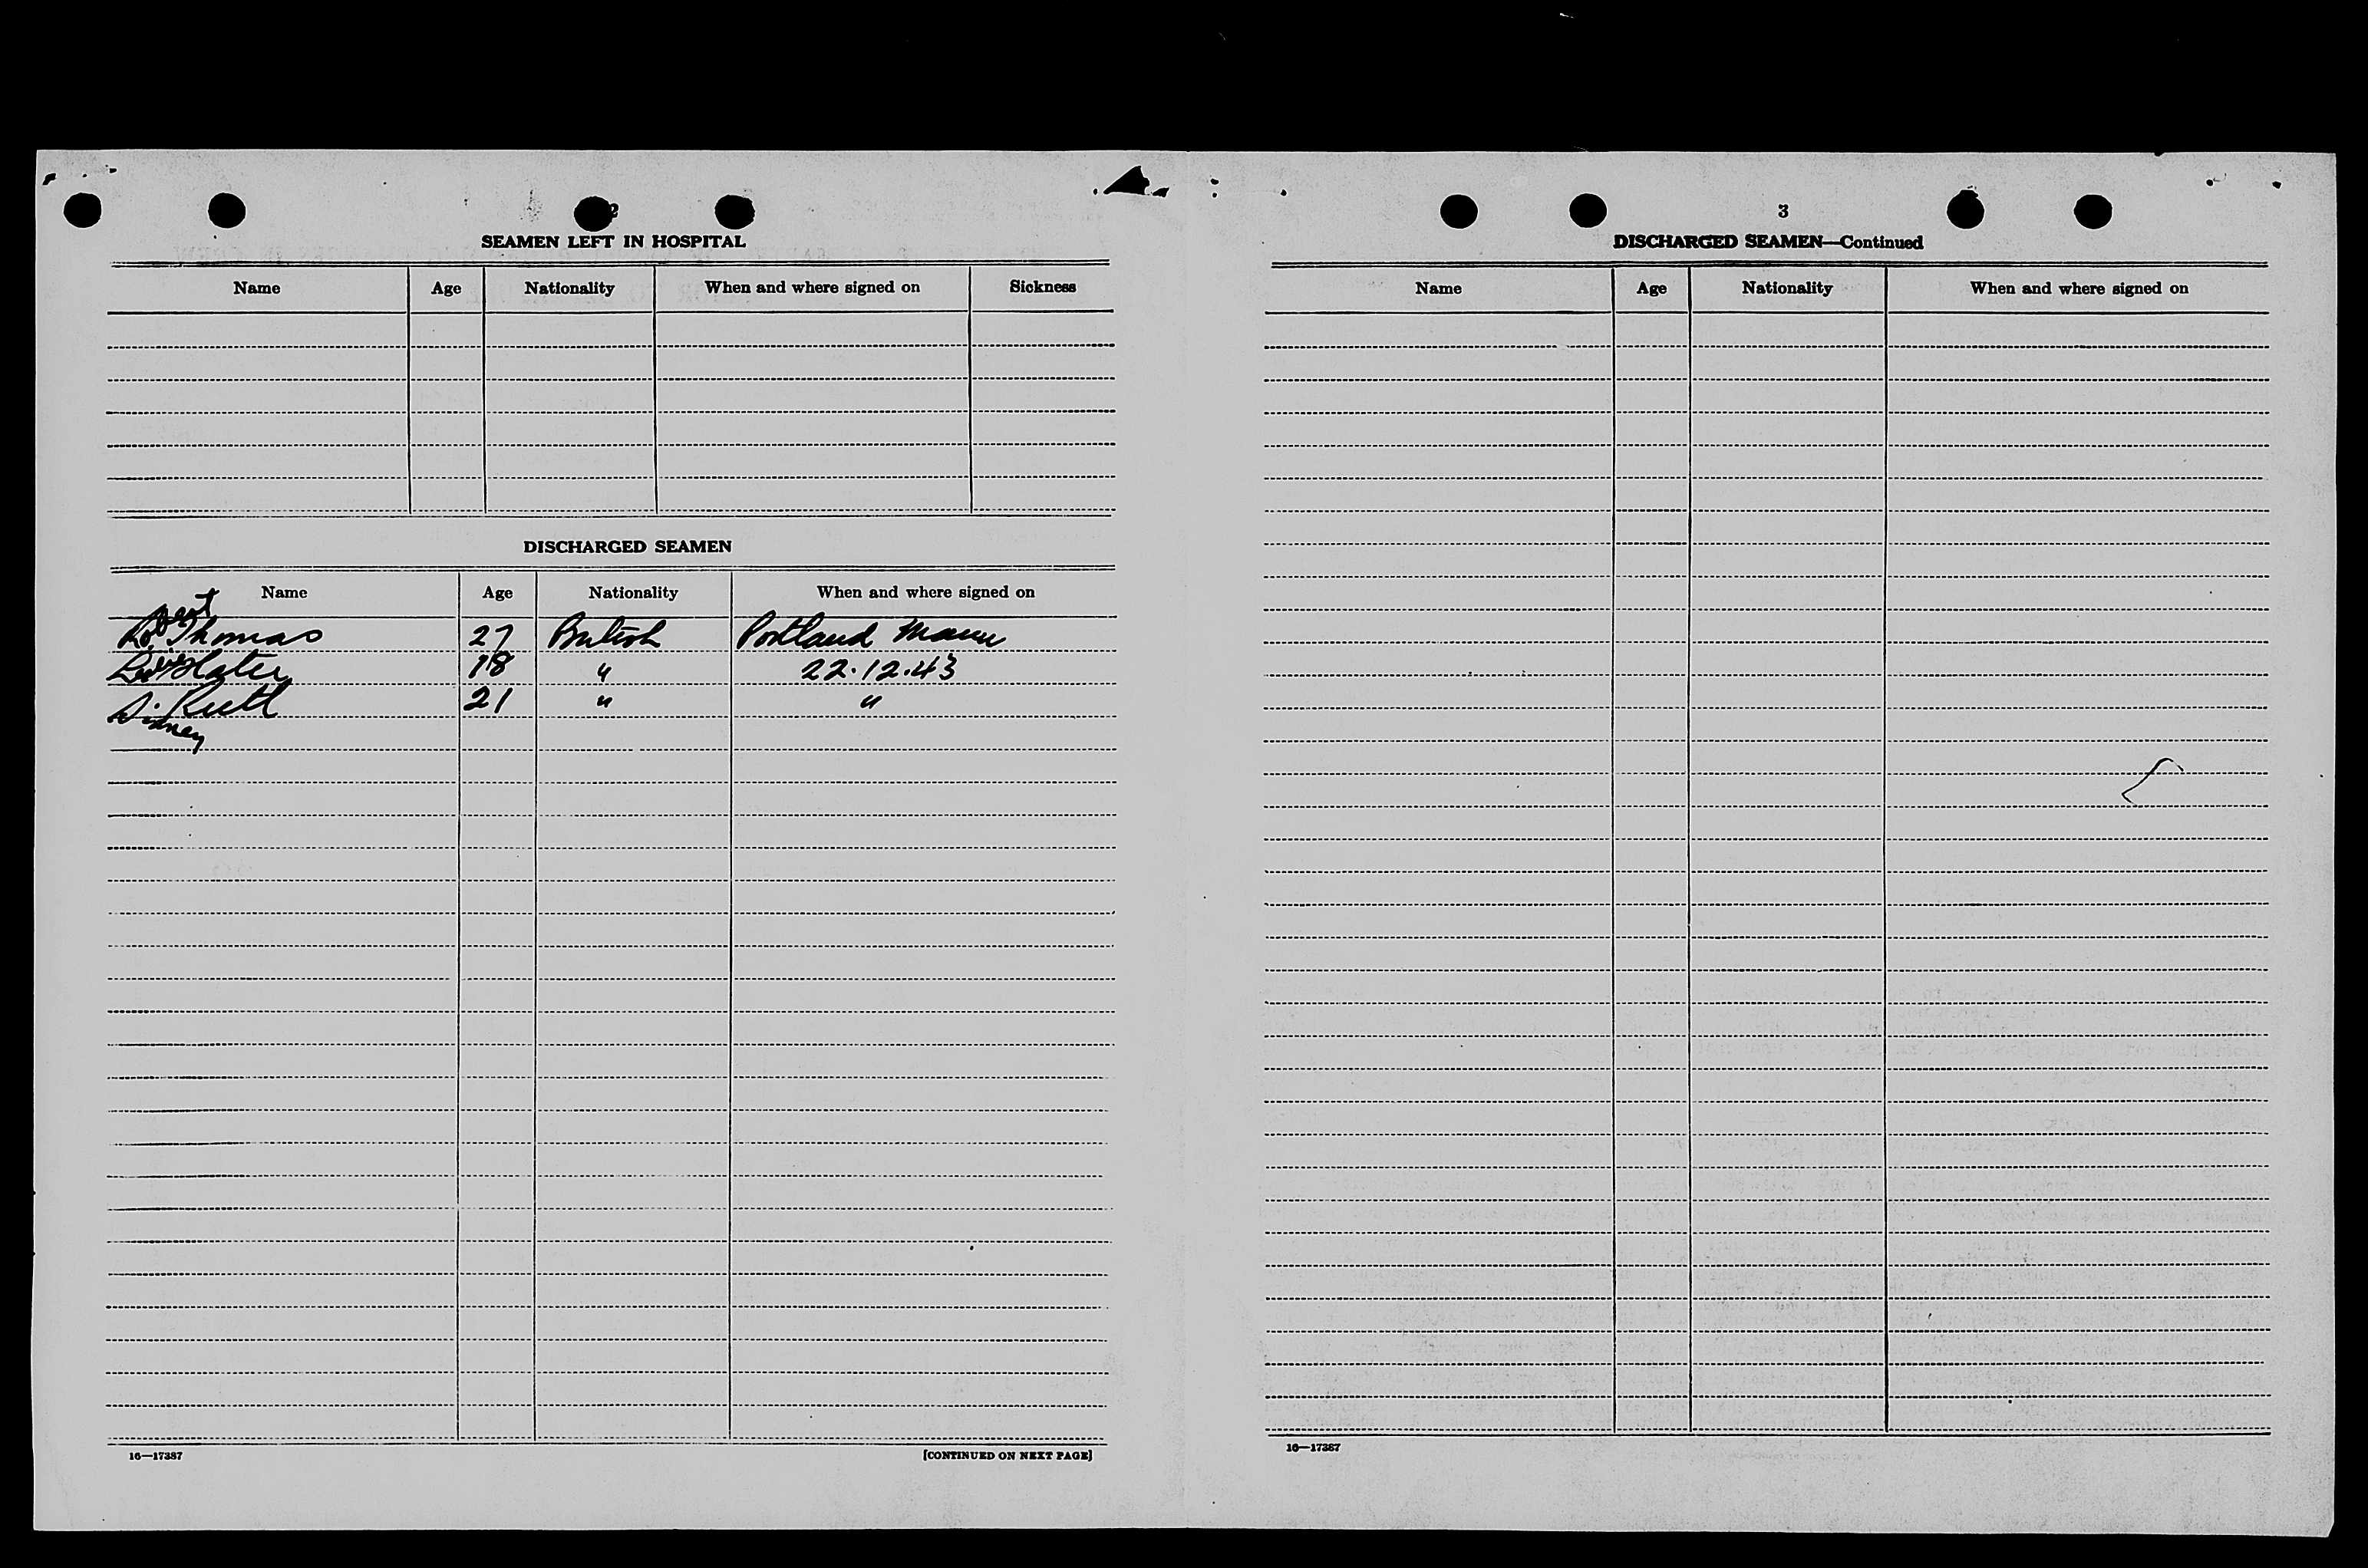 2
SEAMEN LEFT IN HOSPITAL
Name Age Nationality When and where signed on Sickness
DISCHARGED SEAMEN
Name Age Nationality When and where signed on
Robert Thomas 27 British Portland Maine
Slater 18 " 22.12.43
Sidney 21 " "
16—17387
[CONTINUED ON NEXT PAGE]
3
DISCHARGED SEAMEN—Continued
Name Age Nationality When and where signed on
16—17387